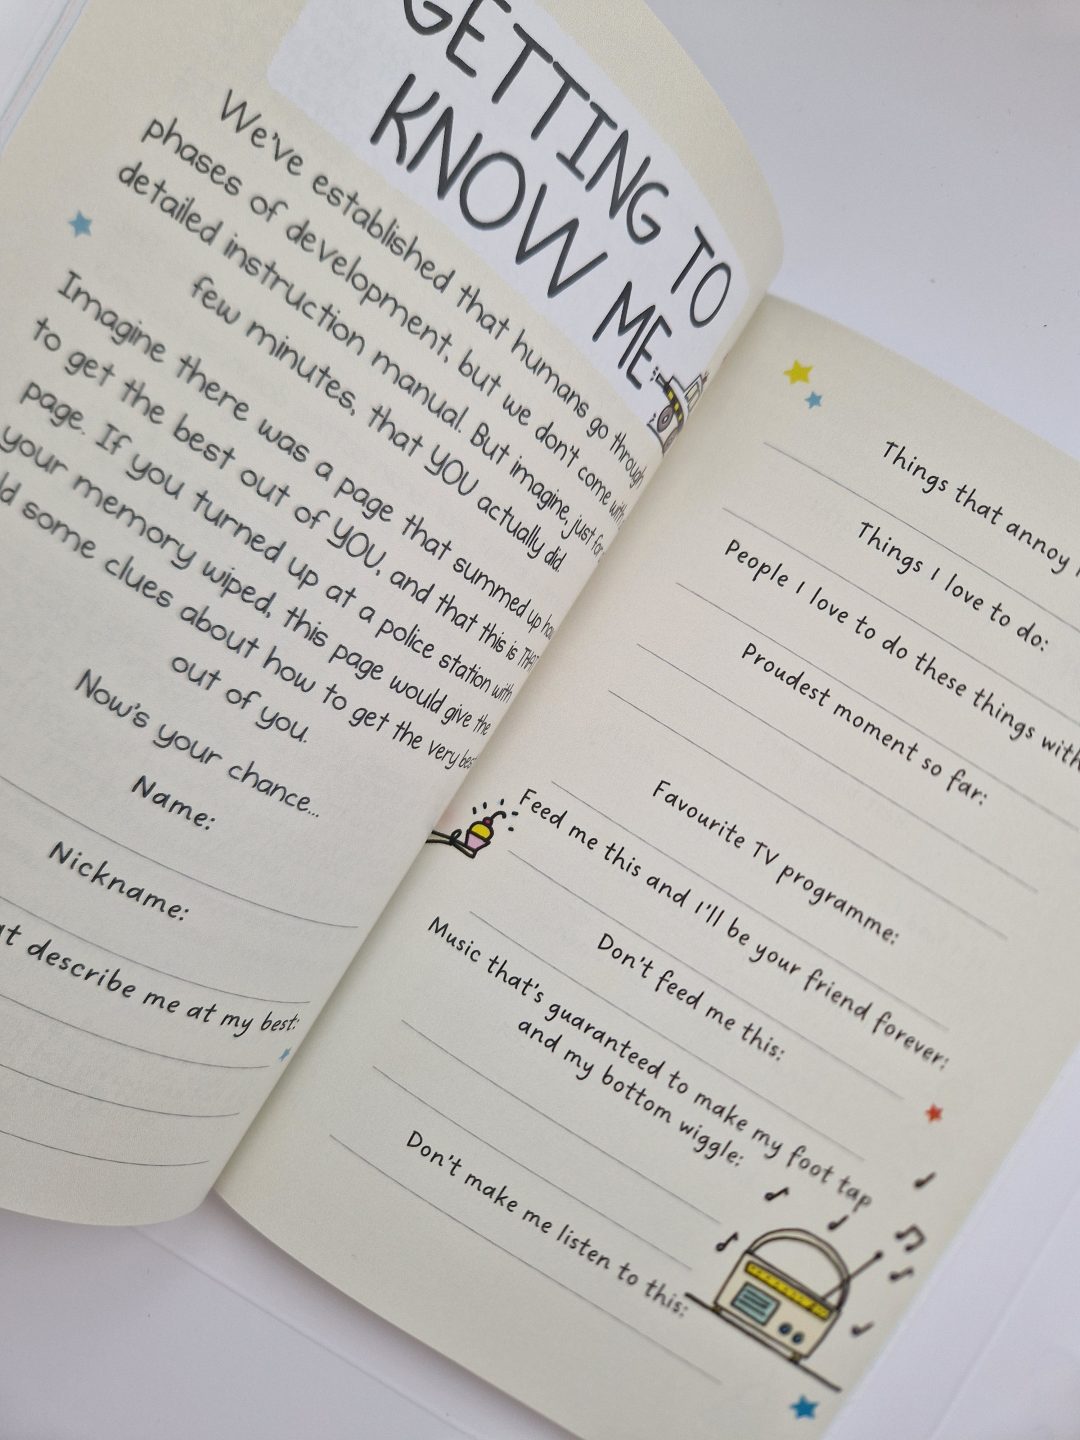 GETTING TO
KNOW ME
We've established that humans go through
phases of development, but we don't come with
detailed instruction manual. But imagine, just for
few minutes, that YOU actually did.
Imagine there was a page that summed up
to get the best out of YOU, and that this is
page. If you turned up at a police station with
your memory wiped, this page would give the
some clues about how to get the very best
out of you.
Now's your chance...
Name:
Nickname:
describe me at my best:
Things that annoy
Things I love to do:
People I love to do these things with
Proudest moment so far:
Favourite TV programme:
Feed me this and I'll be your friend forever:
Don't feed me this:
Music that's guaranteed to make my foot tap
and my bottom wiggle:
Don't make me listen to this: